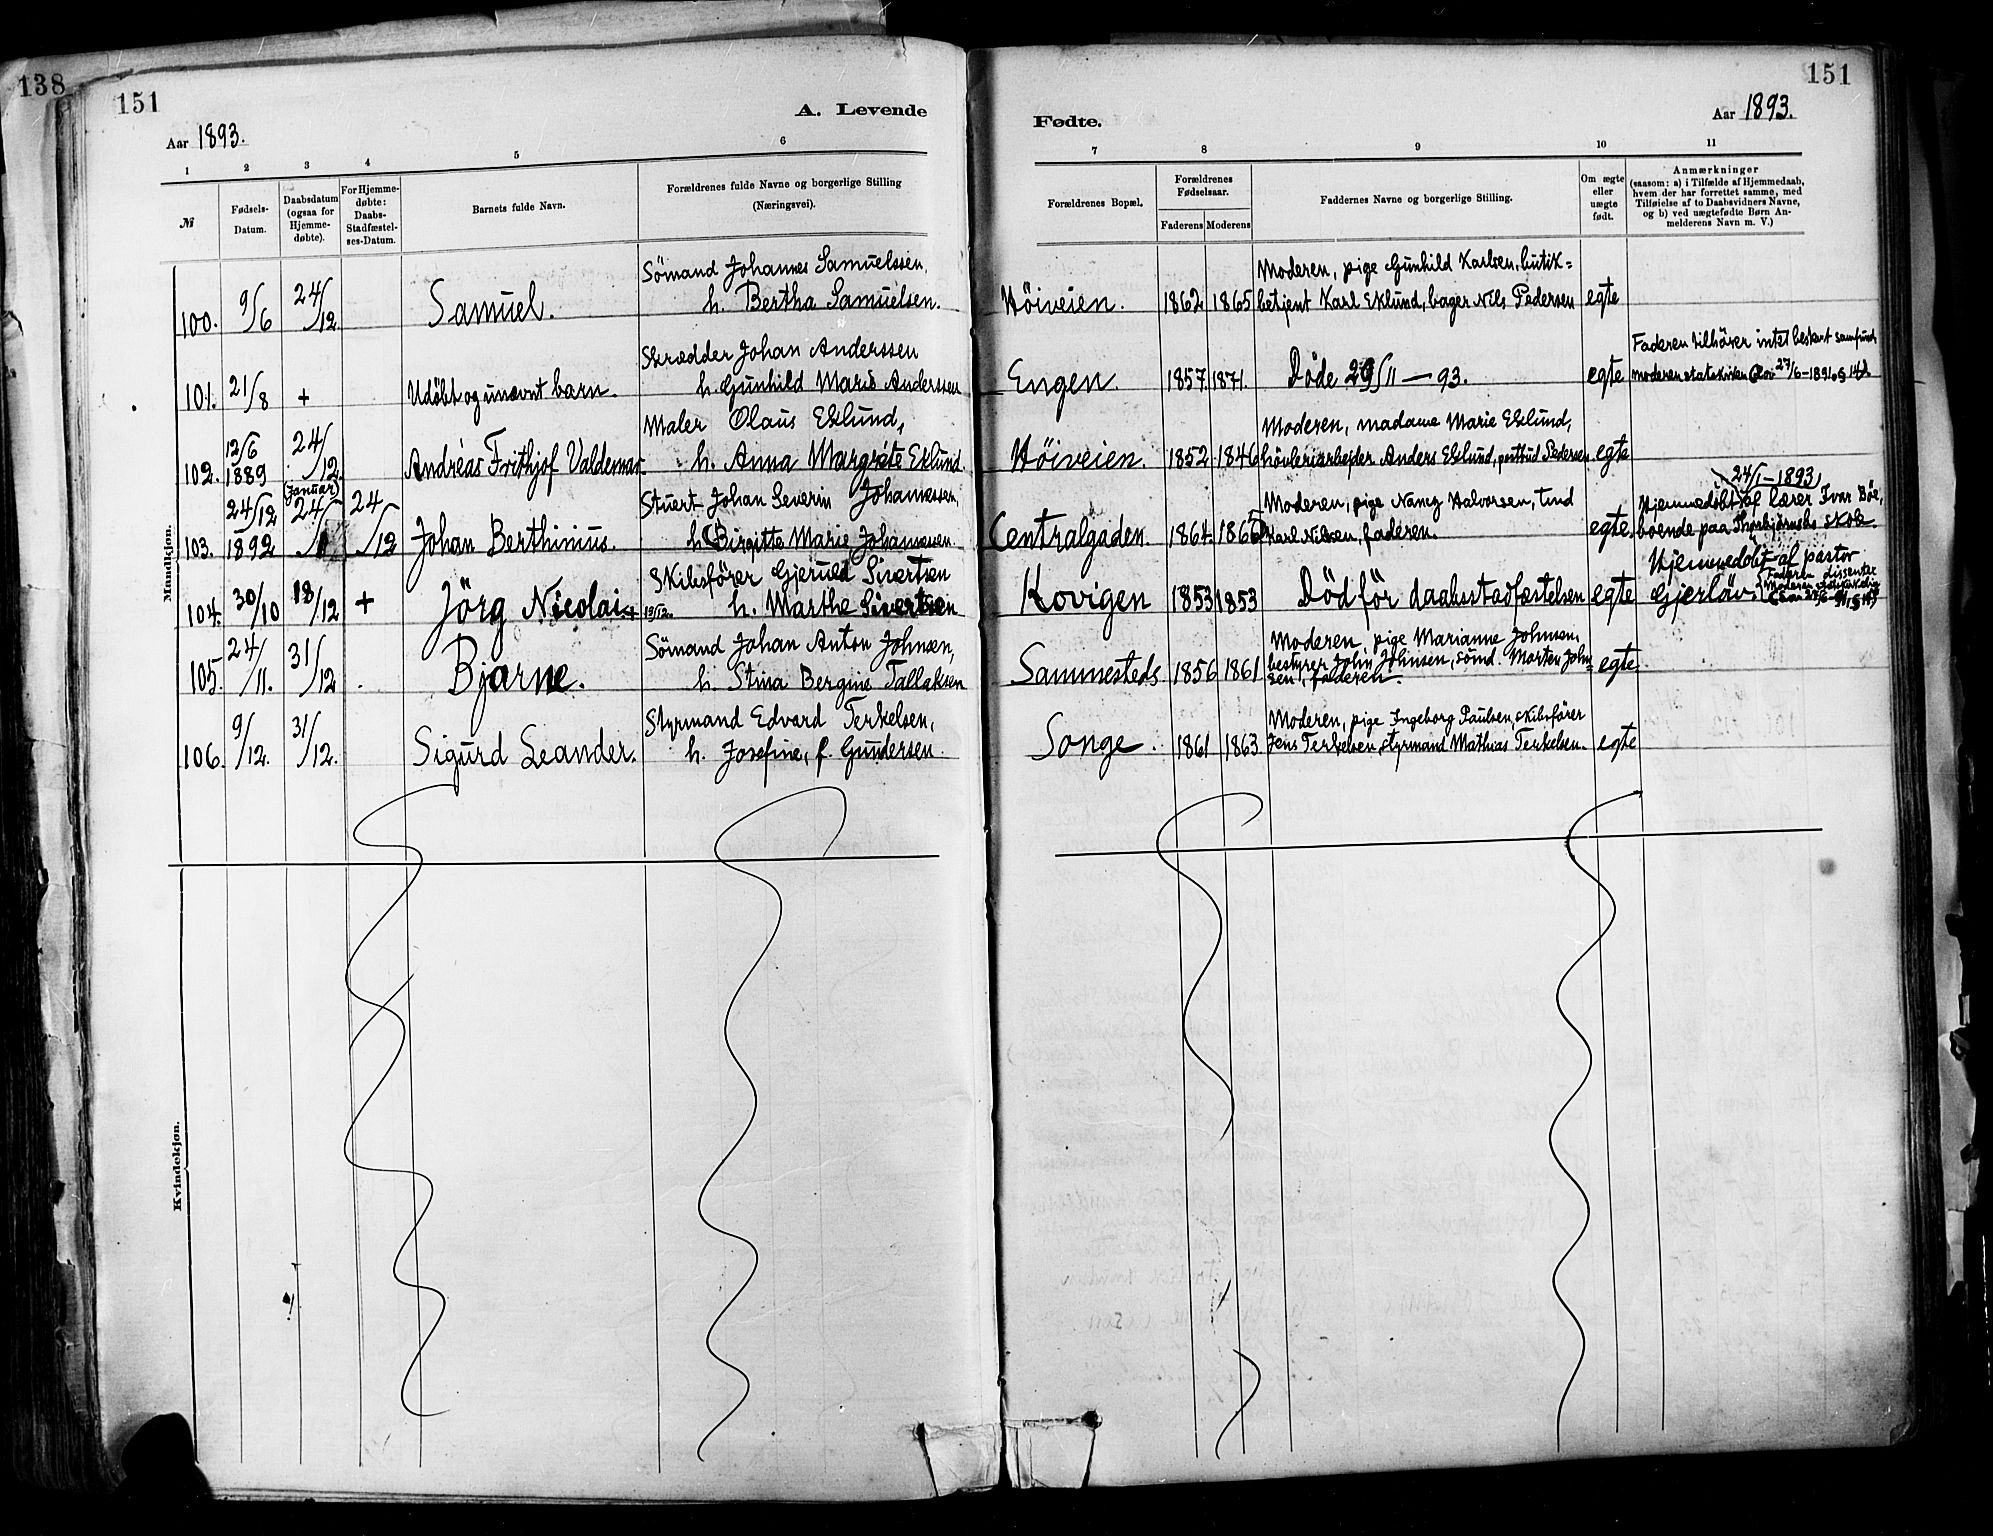 138
151
A. Levende
Aar 1893.
1 2 3 4 5 6
№
Fødsels-
Datum.
Daabsdatum
(ogsaa for
Hjemme-
døbte).
For Hjemme-
døbte:
Daabs-
Stadfæstel-
ses-Datum.
Barnets fulde Navn.
Forældrenes fulde Navne og borgerlige Stilling
(Næringsvei).
Mandkjøn.
100. 9/6 24/12. Samuel.
Sömand Johannes Samuelssen,
h. Bertha Samuelsen.
101. 21/8 + Udöbt og unævnt barn.
Skrædder Johan Anderssen
h. Gunhild Marie Anderssen
102. 12/6 1889 24/12. Andreas Frithjof Valdemar.
Maler Olaus Eklund,
h. Anna Margrete Eklund.
103. 24/12 1892 (Januar) 24/1 24/12 Johan Berthinius.
Stuert Johan Severin Johannessen,
h. Birgitte Marie Johannessen.
104. 30/10 18/12 + Jörg Nicolai. + 19/12.
Skibsförer Gjeruld Sivertsen
h. Marthe Sivertsen
105. 24/11. 31/12 Bjarne.
Sömand Johan Anton Johnsen,
h. Stina Bergine Tallaksen
106. 9/12. 31/12. Sigurd Leander.
Styrmand Edvard Terkelsen,
h. Josefine, f. Gundersen.
Kvindekjøn.
151
Fødte.
Aar 1893.
7 8 9 10 11
Forældrenes Bopæl.
Forældrenes
Fødselsaar.
Faderens Moderens
Faddernes Navne og borgerlige Stilling.
Om ægte
eller
uægte
født.
Anmærkninger
(saasom: a) i Tilfælde af Hjemmedaab,
hvem der har forrettet samme, med
Tilføielse af to Daabsvidners Navne,
og b) ved uægtefødte Børn An-
melderens Navn m. V.)
Moderen, pige Gunhild Karlsen, butik=
Höiveien. 1862 1865 betjent Karl Eklund, bager Nils Pedersen egte
Faderen tilhörer intet bestemt samfund
Engen. 1857. 1871. Döde 29/11 — 93. egte moderen statskirken (Lov 27/6-1891 § 14).
Moderen, madame Marie Eklund,
Höiveien. 1852 1846 hövleriarbejder Anders Eklund, postbud Pedersen egte
24/1 - 1893
Moderen, pige Nancy Halvorsen, Hjemmedöbt af lærer Ivar Böe,
Centralgaden. 1864. 1865 Karl Nilsen, faderen. egte. boende paa Thorbjörnsbo skole.
Hjemmedöbt af pastor
Kovigen 1853 1853 Död för daabsstadfæstelsen egte Gjerlöv.
Faderen dissenter
Moderen, pige Marianne Johnsen,
Sammesteds. 1856 1861 bestyrer John Johnsen, sömd. Morten John=
sen, faderen. egte.
Moderen, pige Ingeborg Paulsen, skibsförer
Songe. 1861 1863. Jens Terkelsen, styrmand Mathias Terkelsen. egte